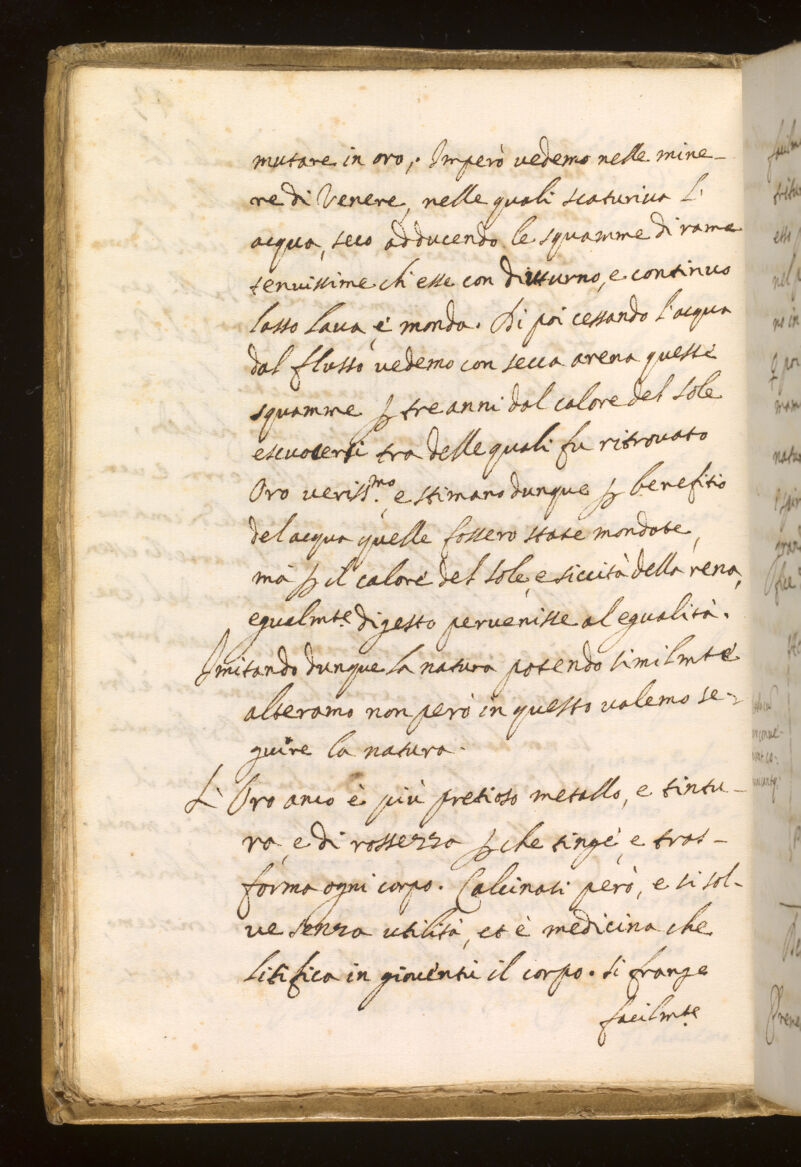 mutare in oro,. Imperò vedemo nelle mine-
re di Venere, nelle quali scaturiva l'
acqua, seco adducendo le squamme di rame
tenuissime ch'esse con diutturno, e continuo
lasso lava, e' monda. Di poi cessando l'acqua
dal flusso vedemo con secca arena queste
squamme ꝑ tre anni dal calore del sole
escuotersi tra delle quali fu ritrovato
Oro veriss.mo, e stimano dunque ꝑ benefitio
del acqua quelle fossero state mondate,
mà ꝑ il calore del sole, e siccità della rena,
egualm.te digesto pervenisse al egualità.
Imitando dunque la natura potendo similmte
alteramo non però in questo valemo se-
guire la natura.
L' Oro anco è più pretioso metallo, e tintu-
ra, e di rossezza ꝑche tinge, e tras-
forma ogni corpo. Calcinasi però, e si sol-
ve senza utilità, et è medicina che
litifica in gioventù il corpo. si frange
facilm.te